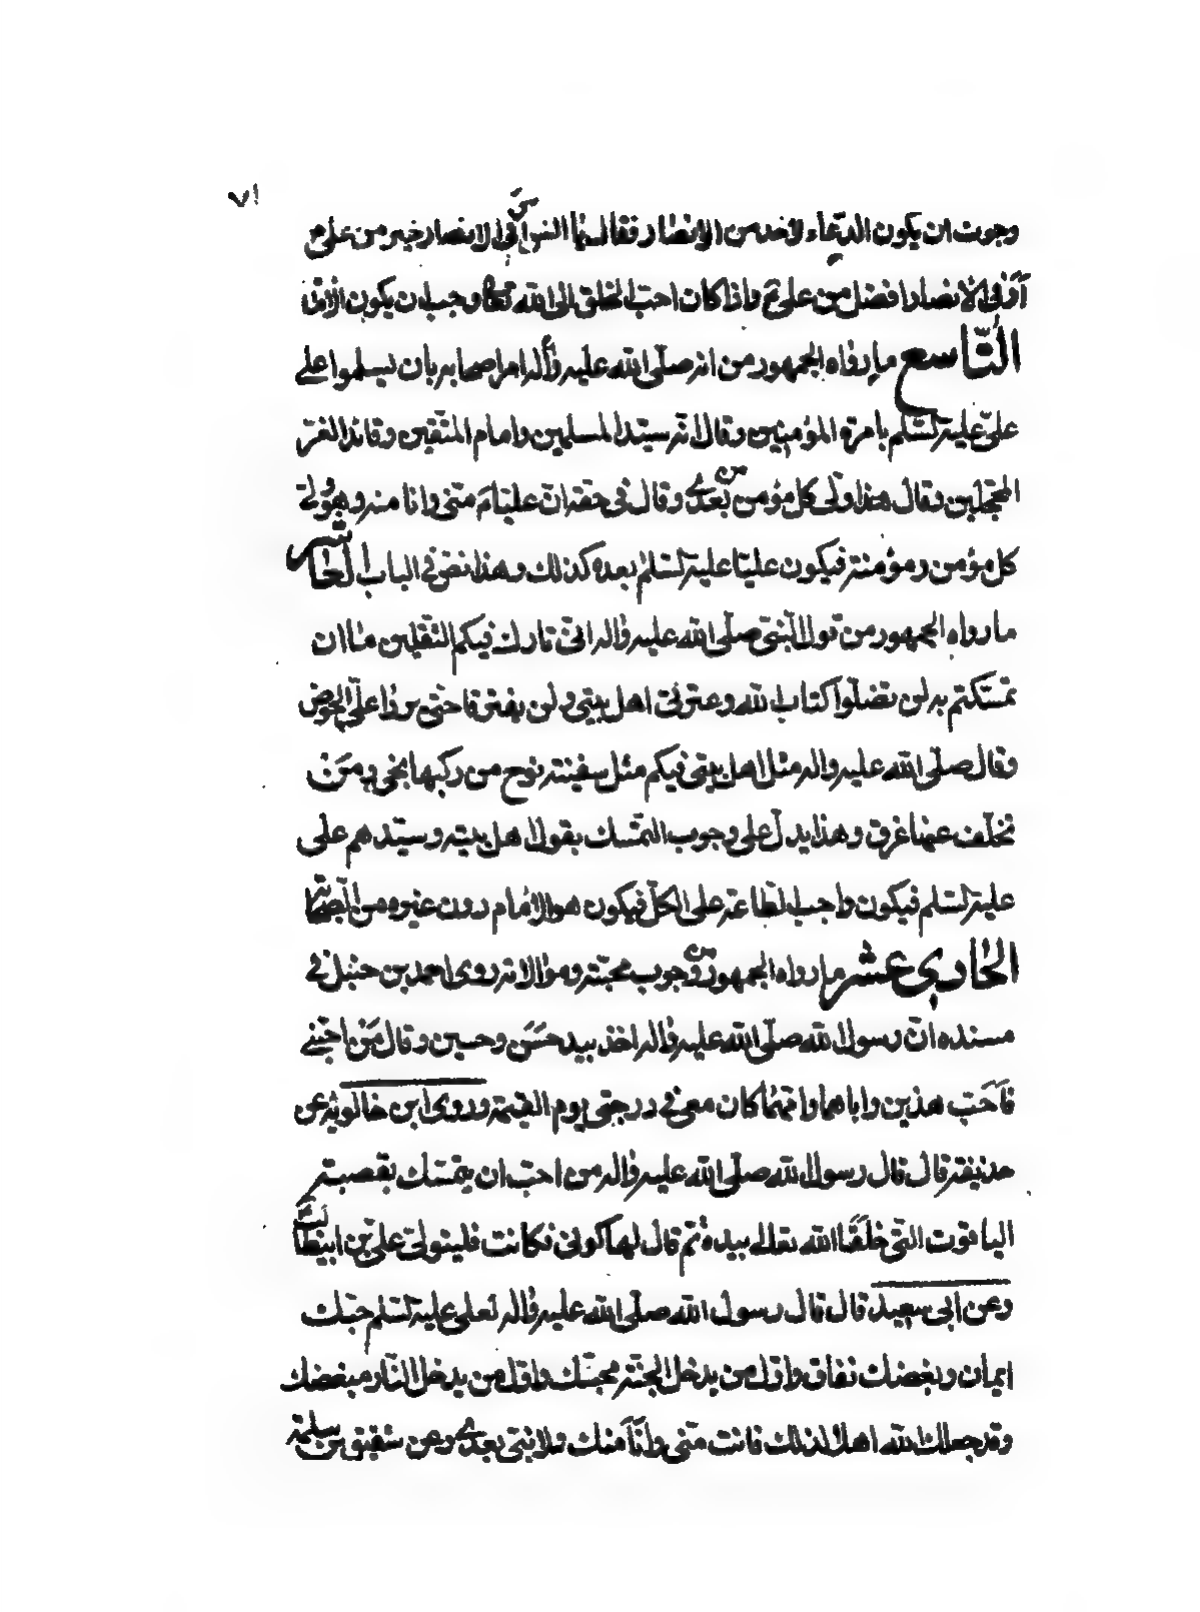 ٧١
وجوت ان يكون الدعاء لاحد من الانصار فقال يا انس أفي الانصار خير من علي ع
أو في الانصار افضل من علي ع واذا كان احب الخلق الى الله تعالى وجب ان يكون الامام
التاسع ما رواه الجمهور من انه صلى الله عليه وآله امر اصحابه بان يسلموا على
علي عليه السلم بامرة المؤمنين وقال انه سيد المسلمين وامام المتقين وقائد الغر
المحجلين وقال هذا ولي كل مؤمن من بعدي وقال في حقه ان عليا ع منى وانا منه وهو ولي
كل مؤمن ومؤمنة فيكون عليا عليه السلم بعده كذلك وهذا نص في الباب العاشر
ما رواه الجمهور من قول النبي صلى الله عليه وآله اني تارك فيكم الثقلين ما ان
تمسكتم به لن تضلوا كتاب الله وعترتي اهل بيتي ولن يفترقا حتى يردا على الحوض
وقال صلى الله عليه وآله مثل اهل بيتي فيكم مثل سفينة نوح من ركبها نجى ومن
تخلف عنها غرق وهذا يدل على وجوب التمسك بقول اهل بيته وسيدهم علي
عليه السلم فيكون واجب الطاعة على الكل فيكون هو الامام دون غيره من الصحابة
الحادي عشر ما رواه الجمهور من وجوب محبته وموالاته روى احمد بن حنبل في
مسنده ان رسول الله صلى الله عليه وآله اخذ بيد حسن وحسين وقال من احبني
فاحب هذين واباهما وامهما كان معي في درجتي يوم القيمة وروى ابن خالويه عن
حذيفة قال قال رسول الله صلى الله عليه وآله من احب ان يتمسك بقصبة
الياقوت التي خلقها الله تعالى بيده ثم قال لها كوني فكانت فليتولى علي بن ابيطالب
وعن ابي سعيد قال قال رسول الله صلى الله عليه وآله لعلي عليه السلم حبك
ايمان وبغضك نفاق واول من يدخل الجنة محبك واول من يدخل النار مبغضك
وقد جعلك الله اهلا لذلك فانت منى وانا منك ولا نبي بعدي وعن شقيق بن سلمة